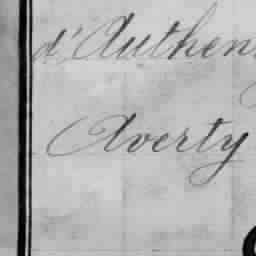 d'Authen
Averty